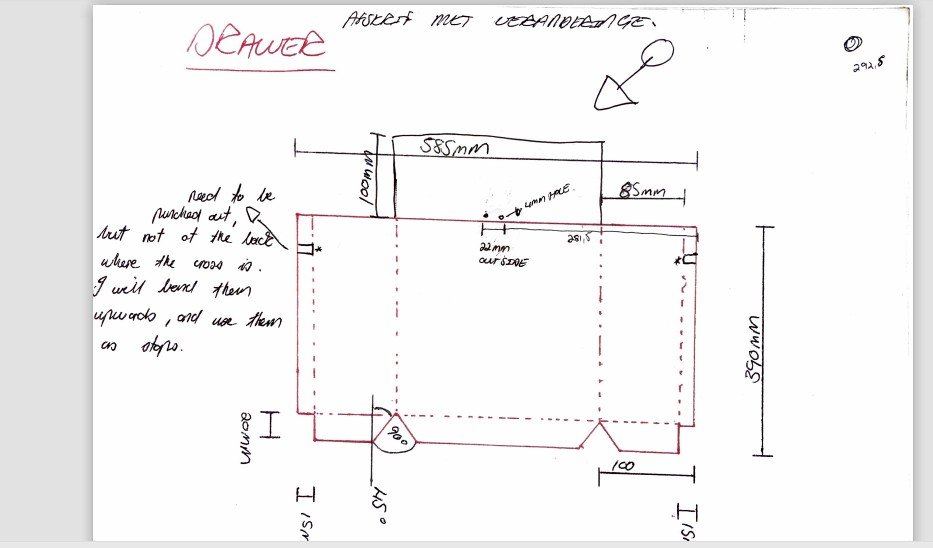 AFSKRIF MET VERANDERINGE.
DRAWER
292,5
585mm
100mm
85mm
4mm HOLE
need to be
punched out,
but not at the back
where the cross is.
I will bend them
upwards, and use them
as stops.
*
22mm
OUTSIDE
281,5
*
390mm
30mm
90°
45°
100
15m
15